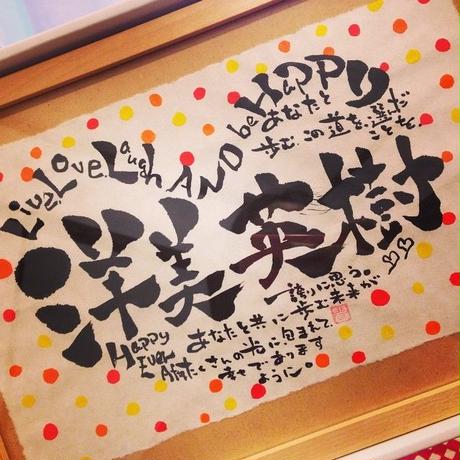 Live, Love, Laugh AND be HAPPY
あなたと
歩む、この道を、選んだ
ことを、
洋美 英樹
誇りに思う。
あなたと共に歩む未来が
たくさんの光に包まれて、
幸せであります
ように。
Happy
Ever
After